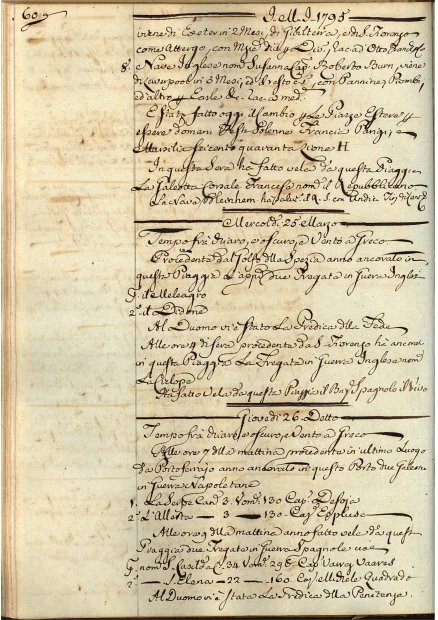 609
J.M.J. 1795
viene di Exeter in 2 Mesi, di Gibilterra, e di S. Fiorenzo
come
8. Nave Inglese nom. Susanna Cap. Roberto Burn, viene
di Liverpool in 3 Mesi, con Pannine, Piombi,
ed altro
E stato fatto oggi il Cambio Le Piazze Estere, e
essere domani Festa Solenne Francia
quaranta
In questa Sera ha fatto vela da questa Piaggia
La Galeotta Corsale Francesa nom. il Repubblicano
La Nave Blenheim ha
Mercoldì, 25 Marzo
Tempo frà chiaro, e oscuro, e Vento a Greco
Procedente dal Golfo della Spezia anno ancorato in
questa Piaggia le appresso due Fregate in Guerra Inglesi
il Meleagro
2. il Didone
Al Duomo vi è Stato La Predica della Fede
Alle ore 4 di Sera procedente da S. Fiorenzo hà ancorato
in questa Piaggia La Fregata in Guerra Inglese nom.
La Ciclope
Ha fatto Vela da questa Piaggia il Brig. Spagnolo il Vivo
Giovedì 26 Detto
Tempo frà chiaro, e oscuro, e Vento a Greco
Alle ore 7 della mattina procedente in ultimo Luogo
da Portoferrajo anno ancorato in questo Porto due Galeotte
in Guerra Napoletane
1. La Serpe Can. 3. Vom. 130 Cap. Desoja
2. L'Allerta — 3 — 130 Cap.
Alle ore 9 della mattina anno fatto vela da questa
Piaggia due Fregate in Guerra Spagnole cioè
nom. S. Casilda C. 34 Vom. 296 Cap.
2. — S. Elena — 22 — 160 Cap. Michele Quadrado
Al Duomo vi è Stata La Predica della Penitenza